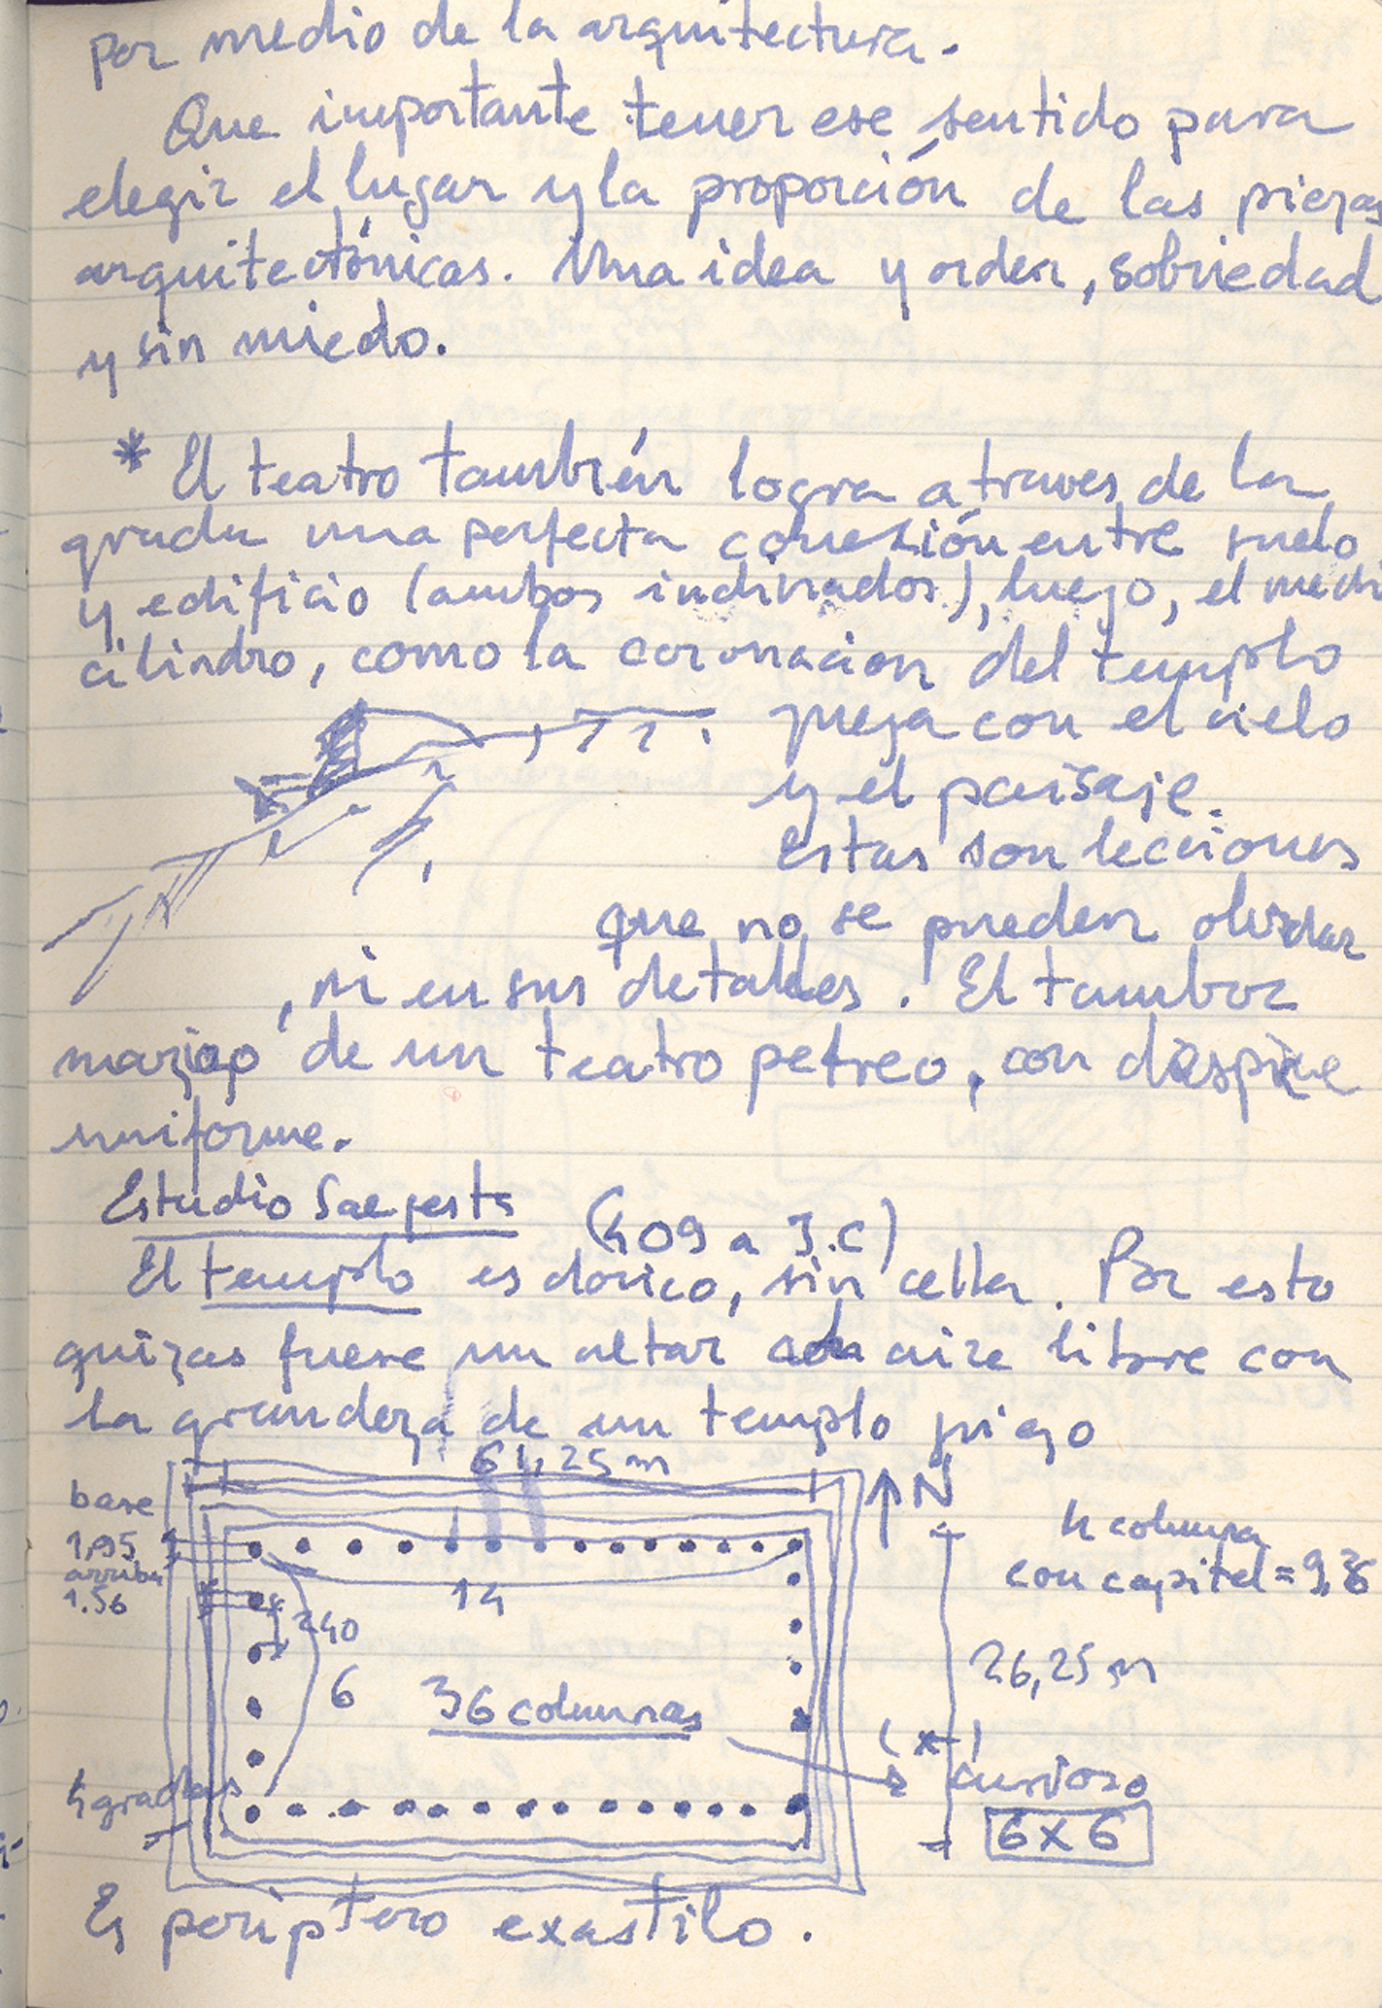 por medio de la arquitectura.
Que importante tener ese sentido para
elegir el lugar y la proporción de las piezas
arquitectónicas. Una idea y orden, sobriedad
y sin miedo.
* El teatro también logra a traves de la
grada una perfecta conexión entre suelo
y edificio (ambos inclinados), luego, el medi
cilindro, como la coronacion del templo
juega con el cielo
y el paisaje.
Estas son lecciones
que no se pueden olvidar
, ni en sus detalles. El tambor
mazizo de un teatro petreo, con despiece
uniforme.
Estudio Saegesta
(409 a J.C)
El templo es dorico, sin cella. Por esto
quizas fuese un altar al aire libre con
la grandeza de un templo griego
61,25 m
N
base
1,95
arriba
1.56
h columna
con capitel = 9,36
14
240
6
36 columnas
26,25 m
(*)
curioso
6x6
4 gradas
Es periptero exastilo.